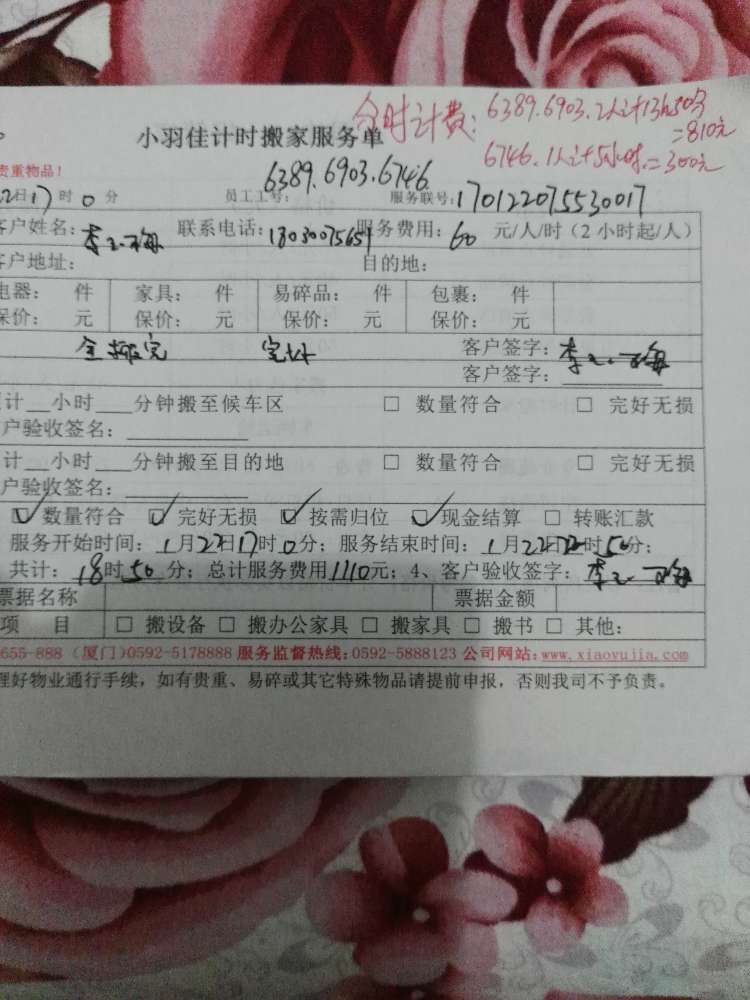 分时计费: 6389.6903.2人计13h50分=810元
6746.1人计5小时.=300元
小羽佳计时搬家服务单
贵重物品！
6389.6903.6746
2日17时0分 员工工号: 服务联号:170122075530017
客户姓名: 联系电话:18030075651 服务费用: 60 元/人/时（2小时起/人）
客户地址: 目的地:
电器: 件 家具: 件 易碎品: 件 包裹: 件
保价: 元 保价: 元 保价: 元 保价: 元
全搬完 完好 客户签字:
客户签字:
计__小时___分钟搬至候车区 □ 数量符合 □ 完好无损
户验收签名:
计__小时___分钟搬至目的地 □ 数量符合 □ 完好无损
户验收签名:
☑数量符合 ☑完好无损 ☑按需归位 ☑现金结算 □ 转账汇款
服务开始时间: 1月22日17时0分; 服务结束时间: 1月22日22时50分;
共计: 18时50分; 总计服务费用1110元; 4、客户验收签字:
票据名称 票据金额
项 目 □ 搬设备 □ 搬办公家具 □ 搬家具 □ 搬书 □ 其他:
655-888（厦门）0592-5178888 服务监督热线:0592-5888123 公司网站:www.xiaoyujia.com
理好物业通行手续，如有贵重、易碎或其它特殊物品请提前申报，否则我司不予负责。